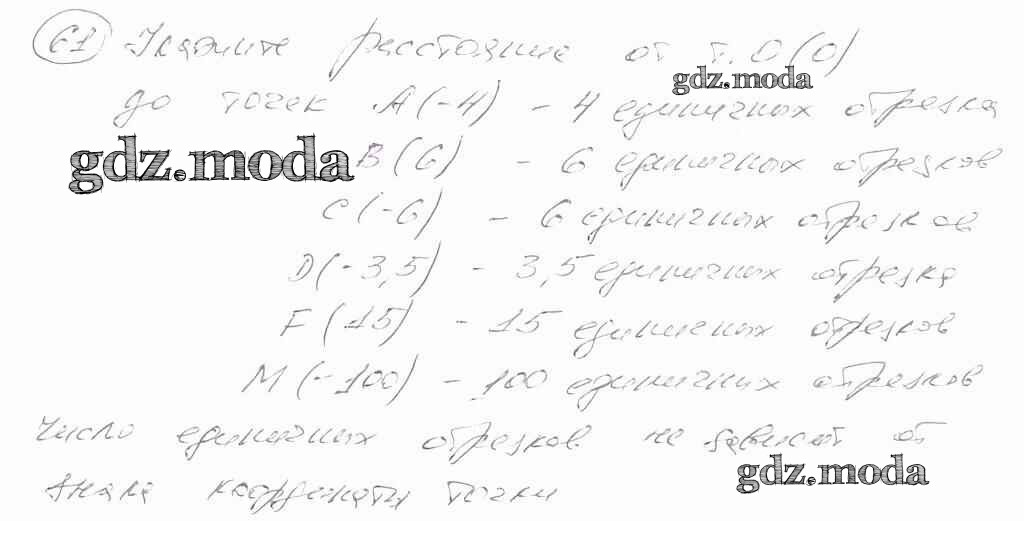 61 Укажите расстояние от т. О(0)
gdz.moda
до точек А(-4) - 4 единичных отрезка
gdz.moda
В(6) - 6 единичных отрезков
С(-6) - 6 единичных отрезков
D(-3,5) - 3,5 единичных отрезка
F(15) - 15 единичных отрезков
М(-100) - 100 единичных отрезков
Число единичных отрезков не зависит от
gdz.moda
знака координаты точки